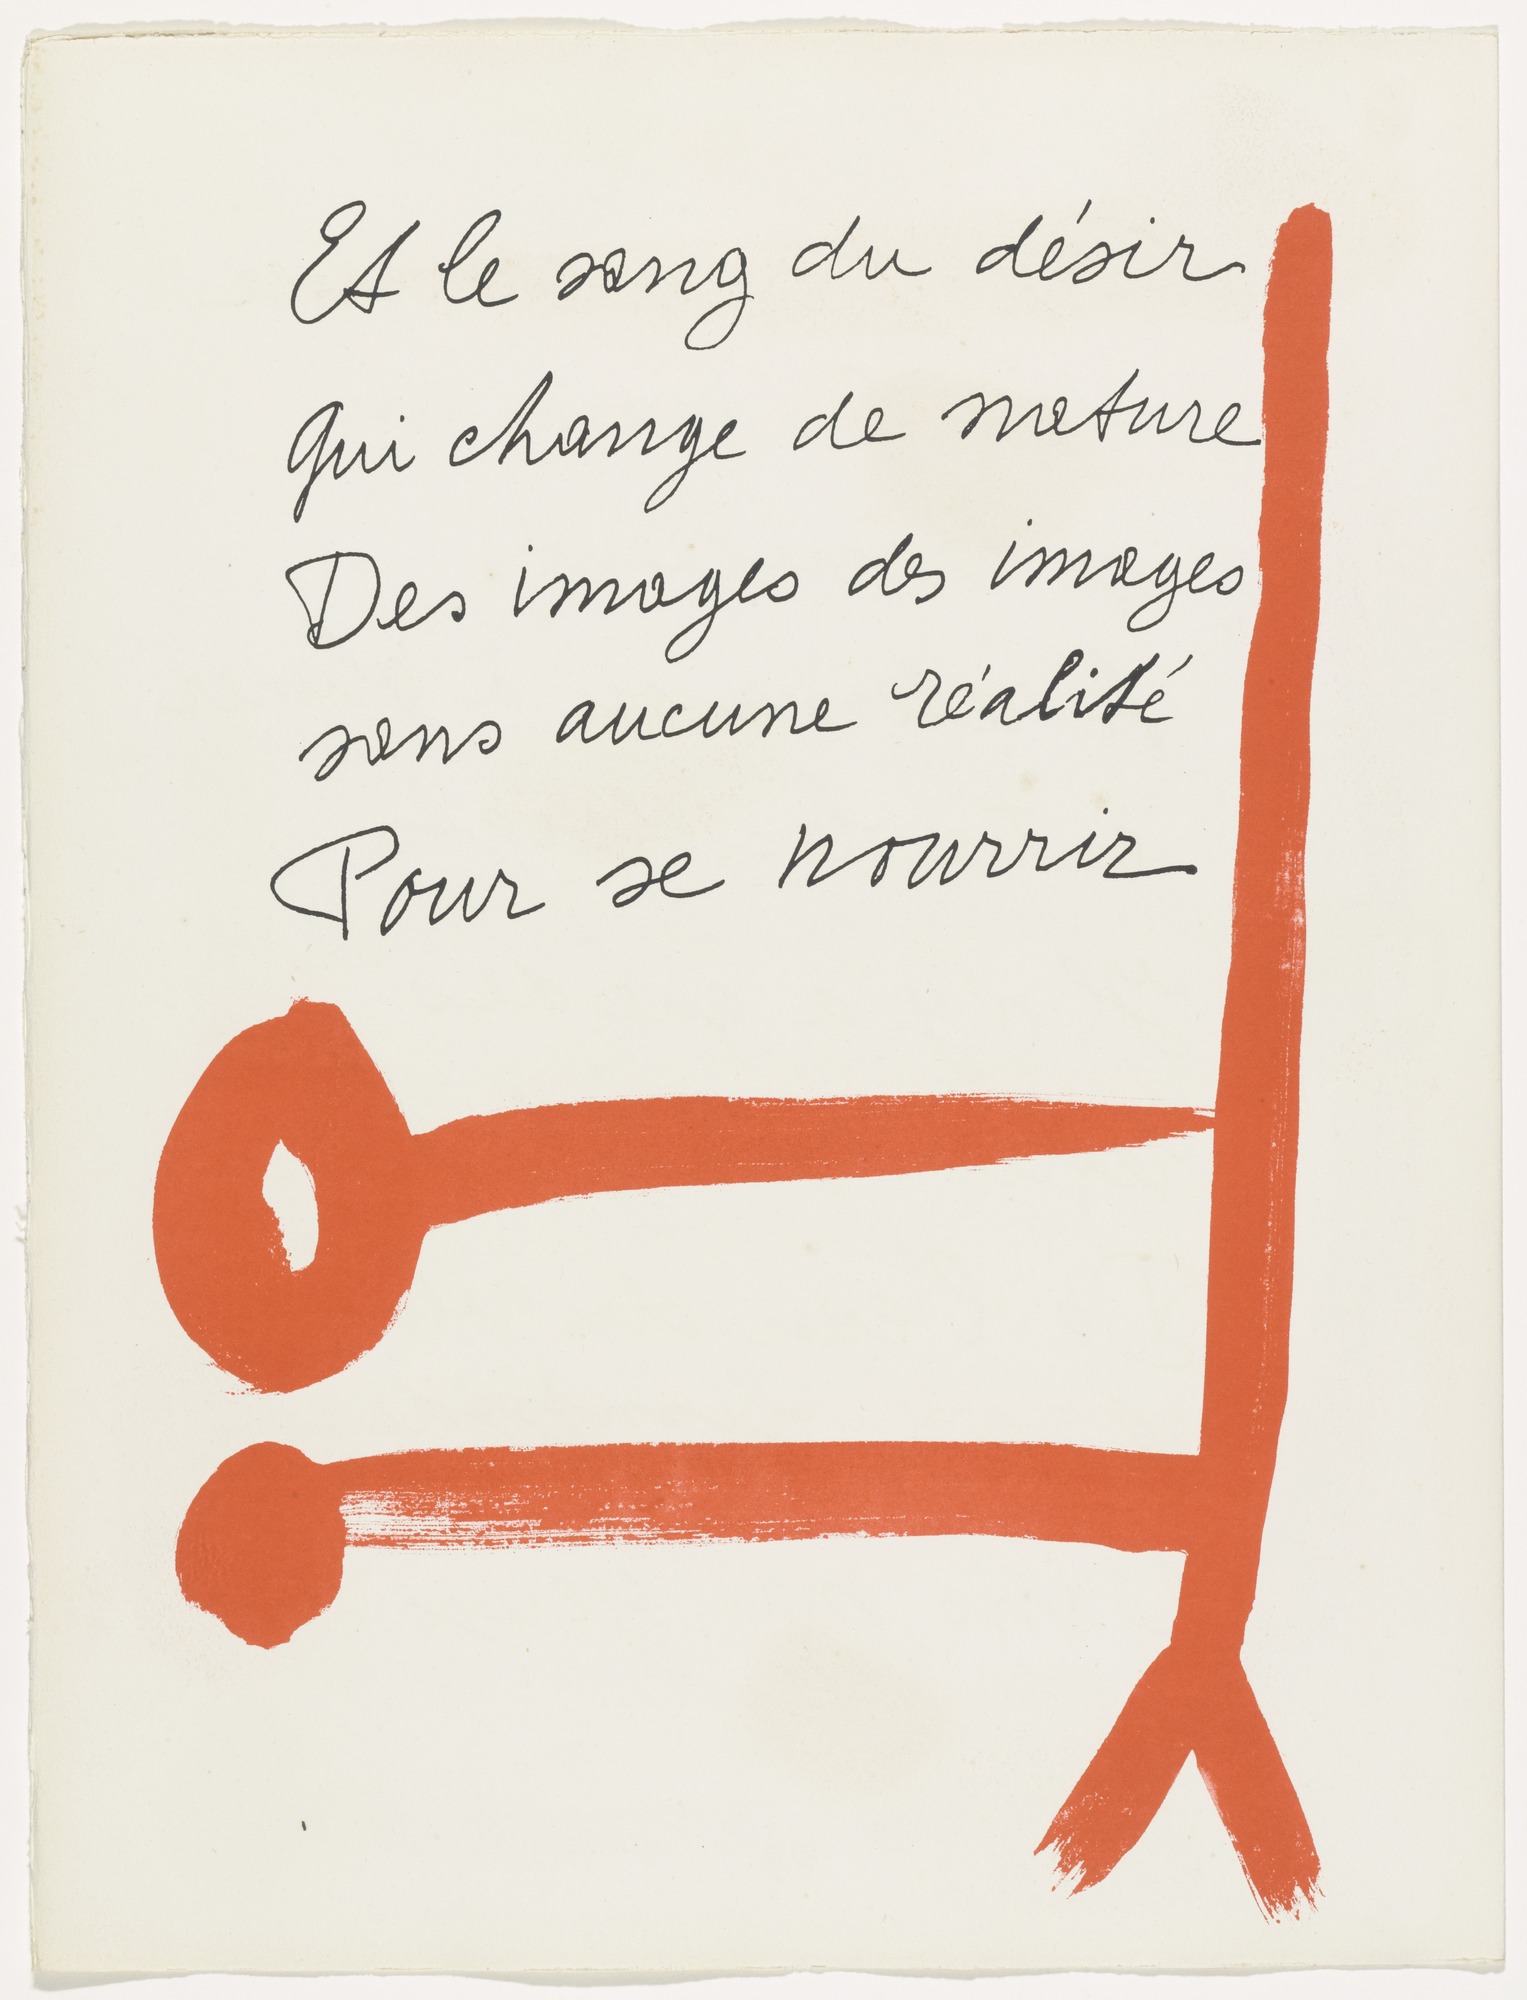 Et le sang du désir
Qui change de nature
Des images des images
sans aucune réalité
Pour se nourrir